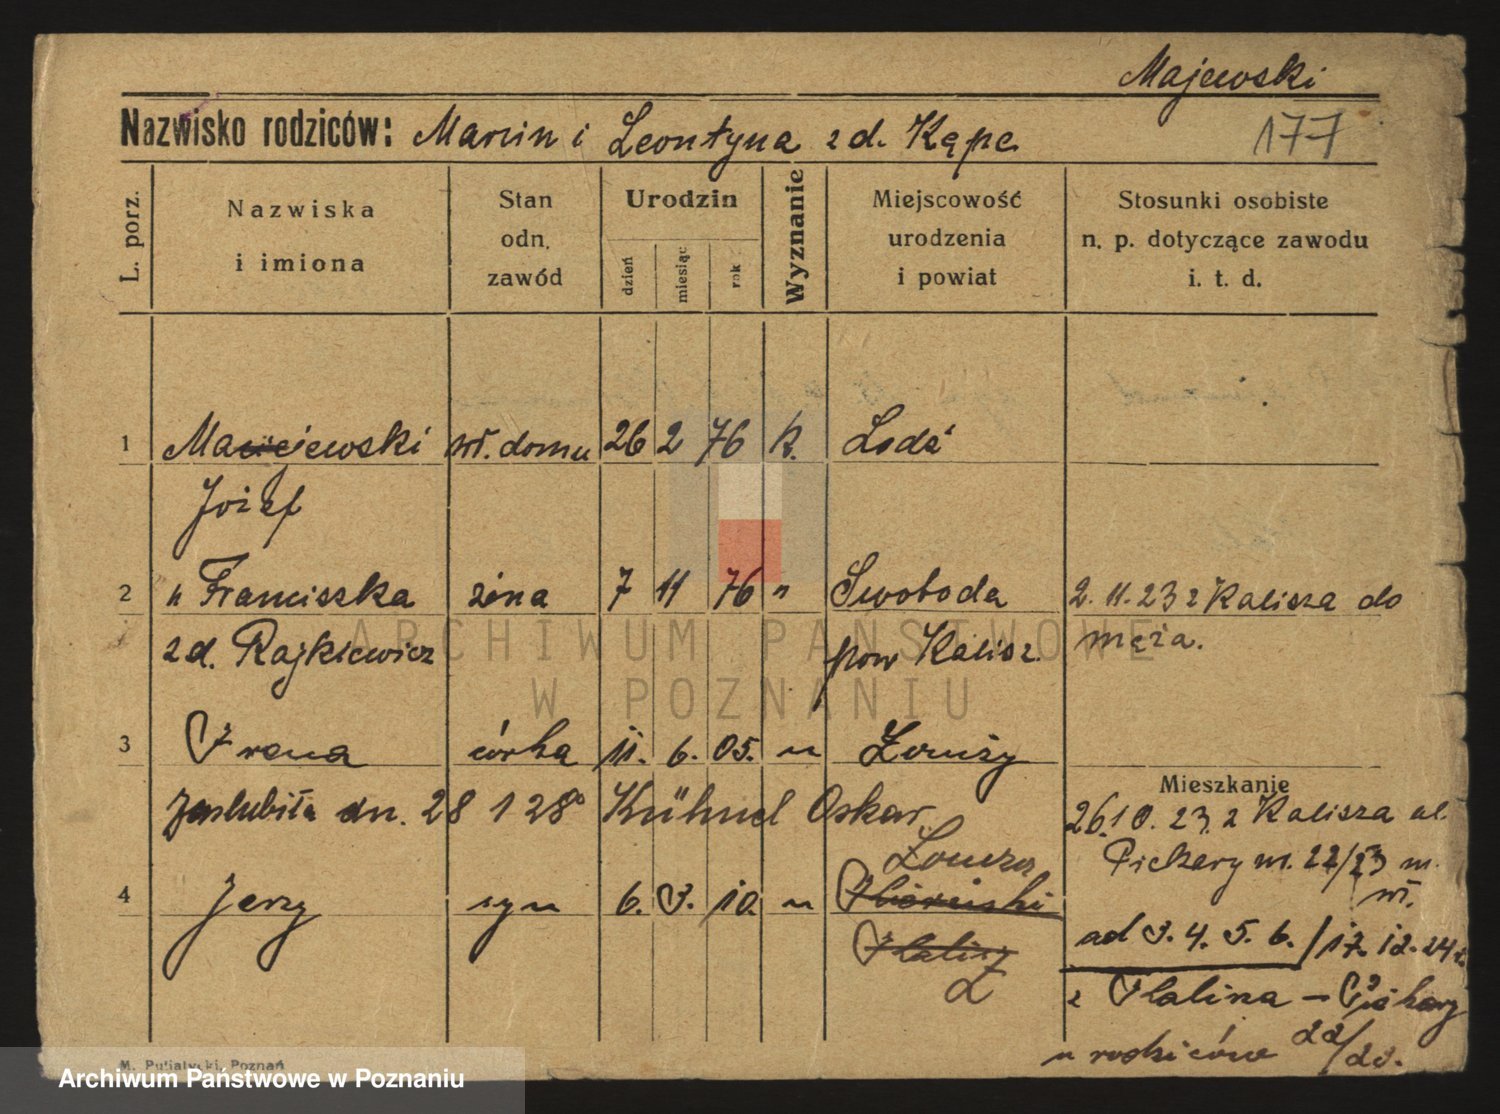 Majewski
Nazwisko rodziców: Marcin i Leontyna z d. Kąpe
177
L. porz.
Nazwiska i imiona
Stan odn. zawód
Urodzin
dzień miesiąc rok
Wyznanie
Miejscowość urodzenia i powiat
Stosunki osobiste n. p. dotyczące zawodu i. t. d.
1 Majewski wł. domu 26 2 76 k. Łodź
Józef
2 " Franciszka żona 7 11 76 " Swoboda 2.11.23 z Kalisza do
z d. Rajkiewicz pow Kalisz męża.
3 Irena córka 11. 6. 05. "
Mieszkanie
zaślubiła dn. 28 1 28 Kühnel Oskar 26.10.23. z Kalisza ul.
Piekary m. 22/23 m.
wł.
4 Jerzy syn 6. 3. 10. "
ad 3. 4. 5. 6. / 17. 12. 24 r.
z Kalisza - Piekary
u rodziców 22/23.
M. Putiatycki, Poznań
ARCHIWUM PAŃSTWOWE
W POZNANIU
Archiwum Państwowe w Poznaniu